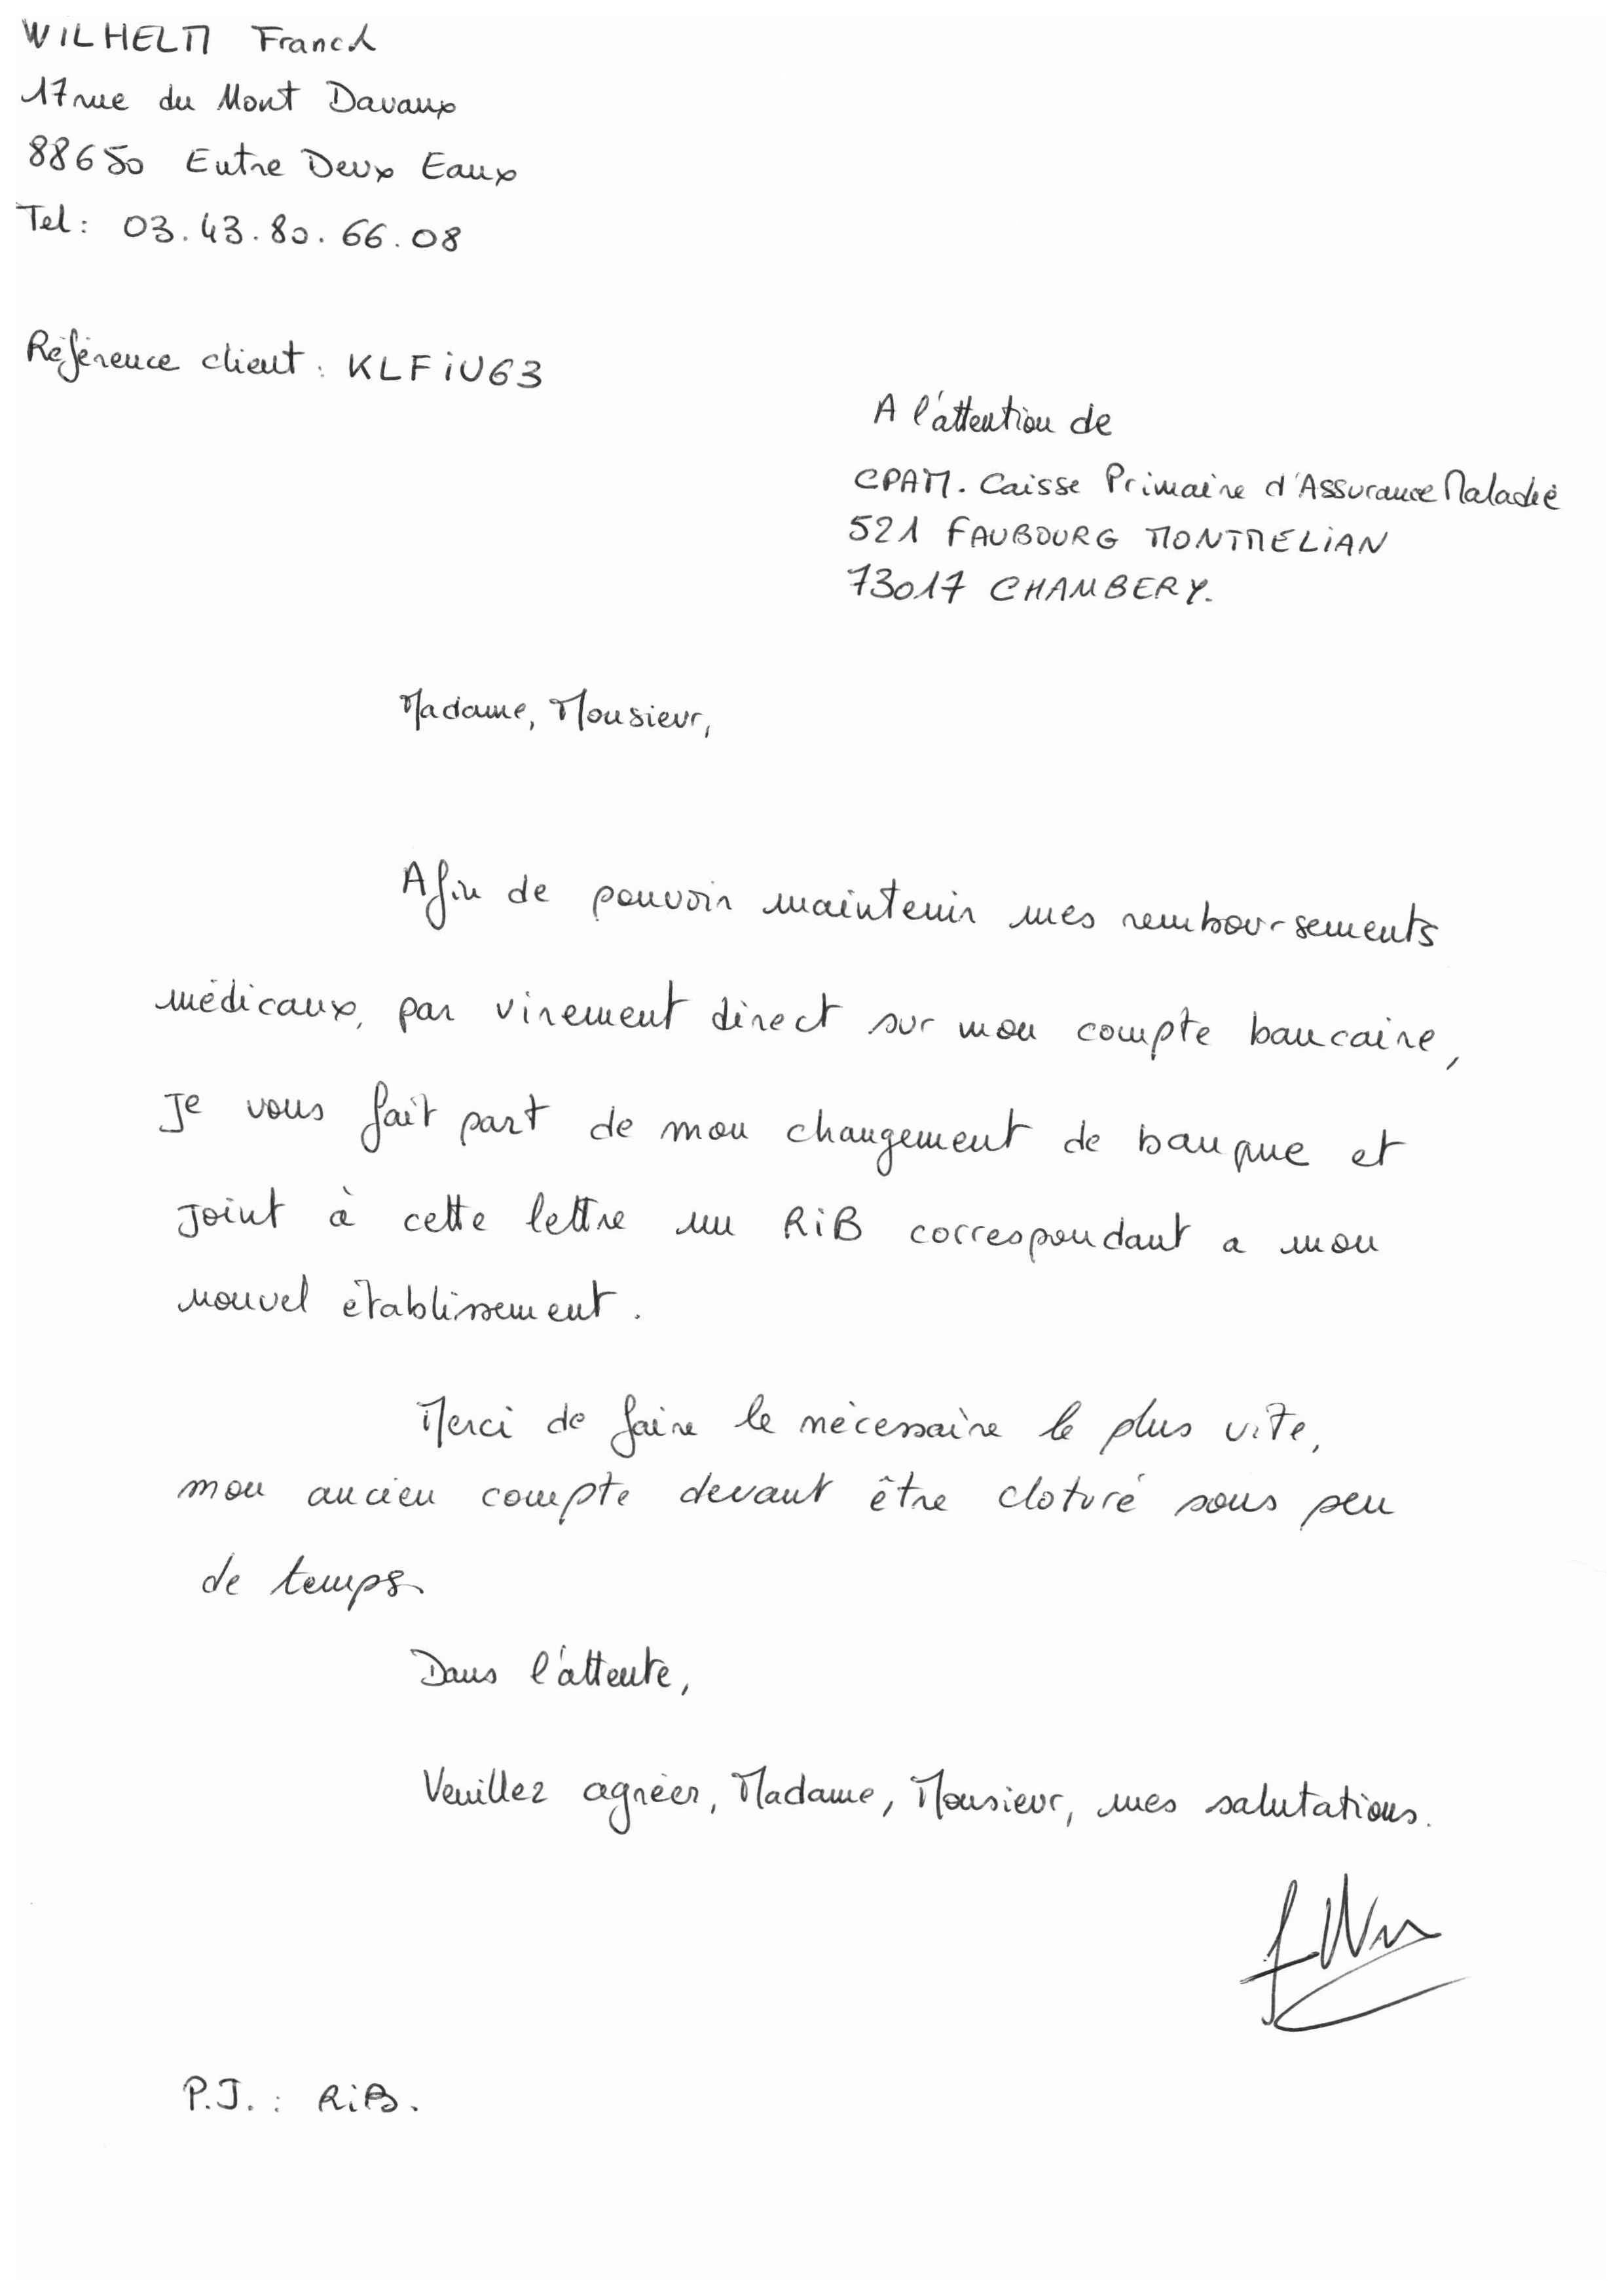 WILHELM Franck
17 rue du Mont Davaux
88650 Entre Deux Eaux
Tel : 03.43.80.66.08
Référence client : KLFiU63
A l'attention de
CPAM. Caisse Primaire d'Assurance Maladie
521 FAUBOURG MONTMELiAN
73017 CHAMBERY.
Madame, Monsieur,
Afin de pouvoir maintenir mes remboursements
médicaux, par virement direct sur mon compte bancaire,
Je vous fait part de mon changement de banque et
joint à cette lettre un RiB correspondant a mon
nouvel établissement.
Merci de faire le nécessaire le plus vite,
mon ancien compte devant être cloturé sous peu
de temps.
Dans l'attente,
Veuillez agréer, Madame, Monsieur, mes salutations.
P.J. : RiB.